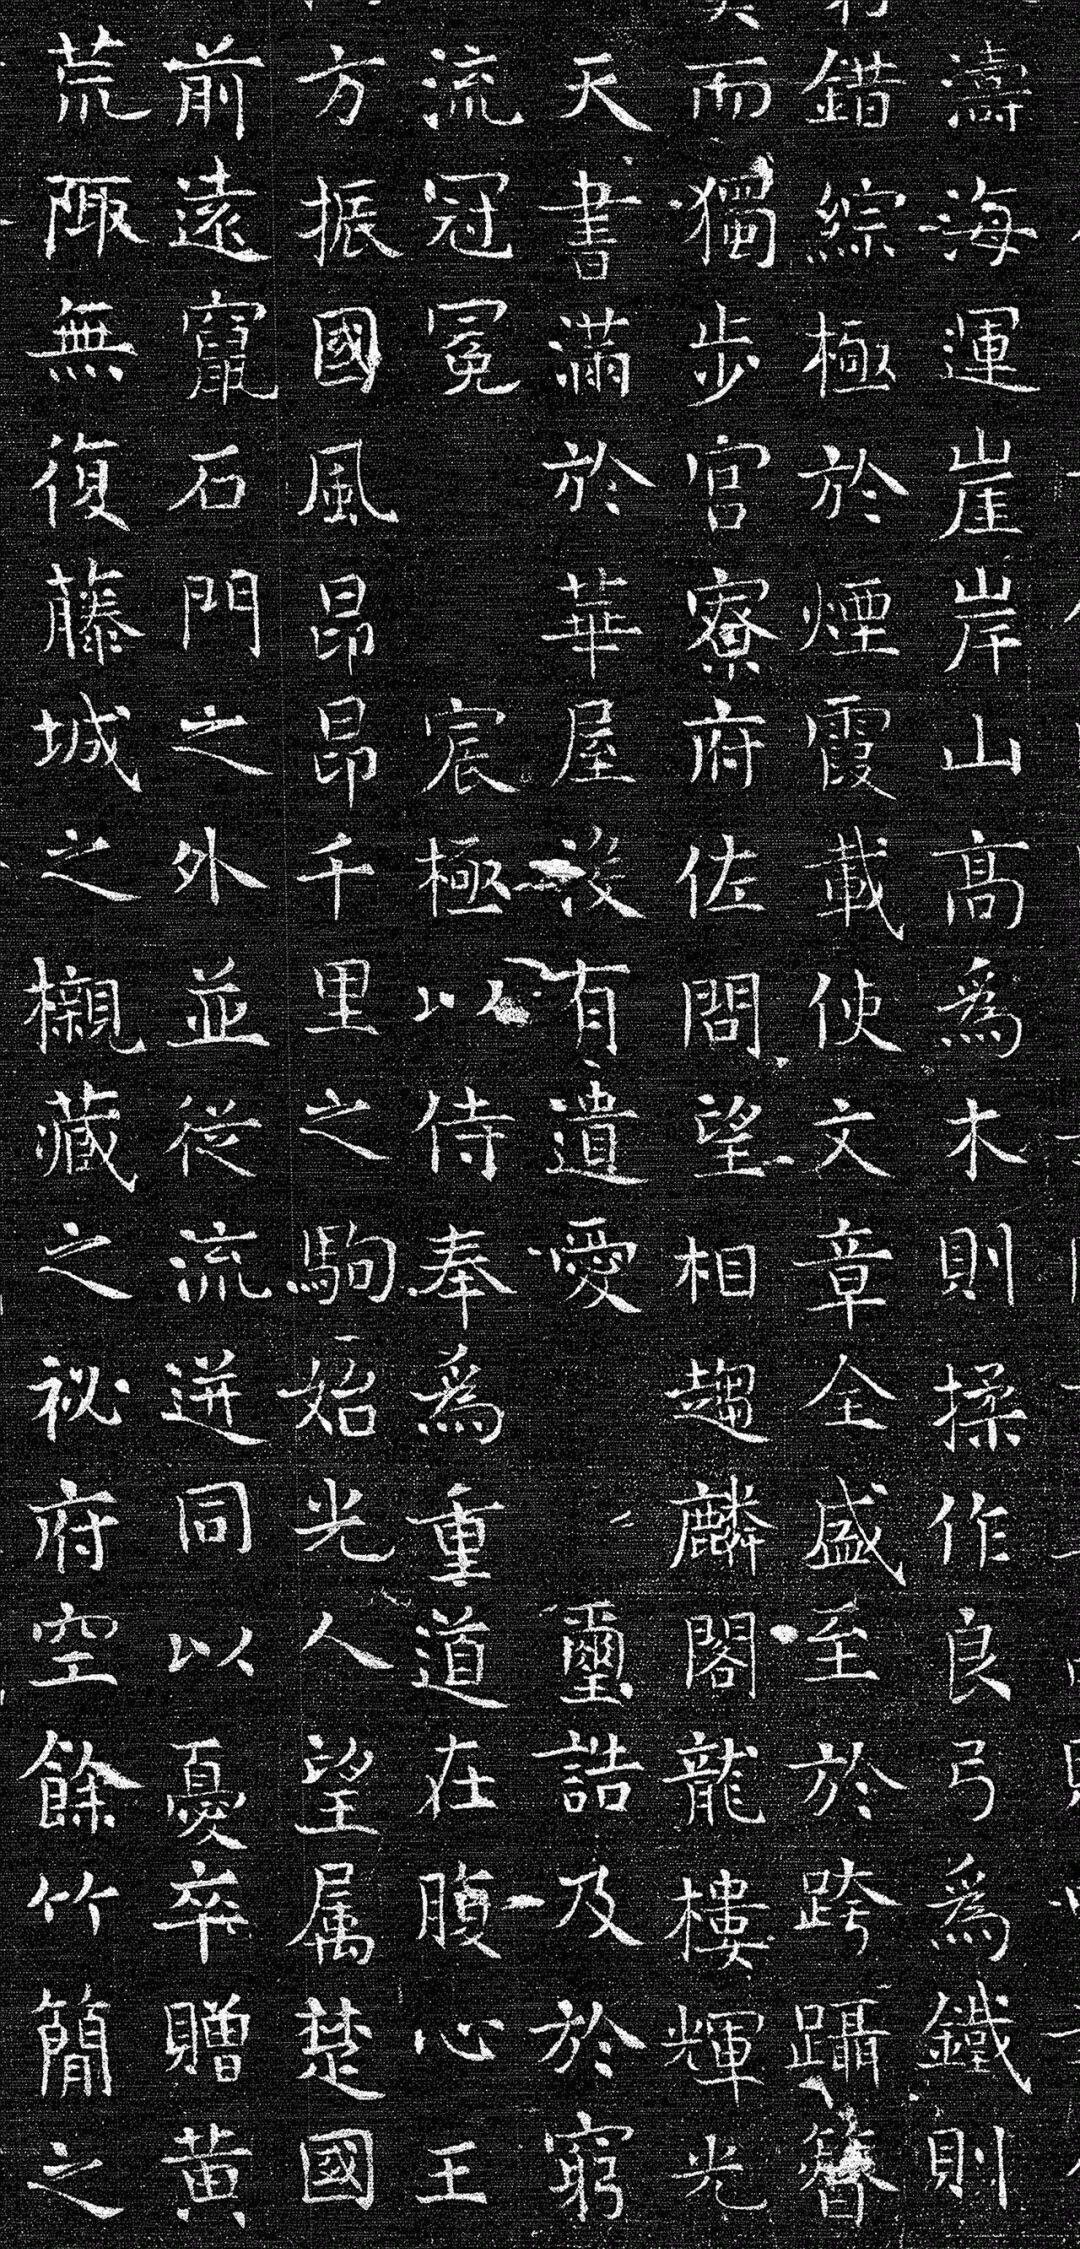 濤海運崖岸山高為木則揉作良弓為鐵則
錯綜極於煙霞載使文章全盛至於跨躡簪
而獨步官寮府佐問望相趨麟閣龍樓輝光
天書滿於華屋沒有遺愛璽誥及於窮
流冠冕宸極以侍奉為重道在腹心王
方振國風昂昂千里之駒始光人望属楚國
前遠竄石門之外並從流迸同以憂卒贈黃
荒陬無復藤城之櫬藏之祕府空餘竹簡之